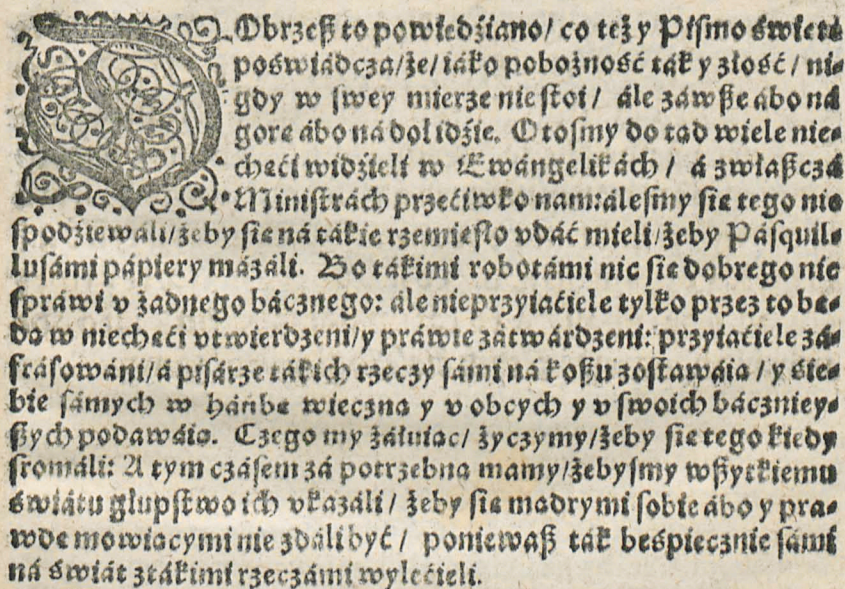 DObrześ to powiedźiano/ co też y Pismo święte
poświádcza/że/iáko pobożność ták y złość/ ni-
gdy w swey mierze nie stoi/ ále záwsze ábo ná
gorę ábo ná doł idźie. Otosmy do tąd wiele nie-
chęći widźieli w Ewángelikách/ á zwłaszczá
Ministrách przećiwko nam: álesmy się tego nie
spodźiewáli/żeby się ná tákie rzemięsło vdáć mieli/żeby Pásquil-
lusámi pápiery mázáli. Bo tákimi robotámi nic się dobrego nie
spráwi v żadnego bácznego: ále nieprzyiaćiele tylko przez to bę-
dą w niechęći vtwierdzeni/y práwie zátwárdzeni: przyiaćiele zá-
frásowáni/á pisárze tákich rzeczy sámi ná koszu zostawáią/y sie-
bie sámych w háńbę wieczną y v obcych y v swoich báczniey-
szych podawáią. Czego my żáłuiąc/ życzymy/żeby się tego kiedy
sromáli: A tym czásem zá potrzebną mamy/żebysmy wszytkiemu
świátu głupstwo ich vkazáli/ żeby się mądrymi sobie ábo y pra-
wdę mowiącymi nie zdáli być/ poniewasz ták bespiecznie sámi
ná świát z tákimi rzeczámi wylećieli.